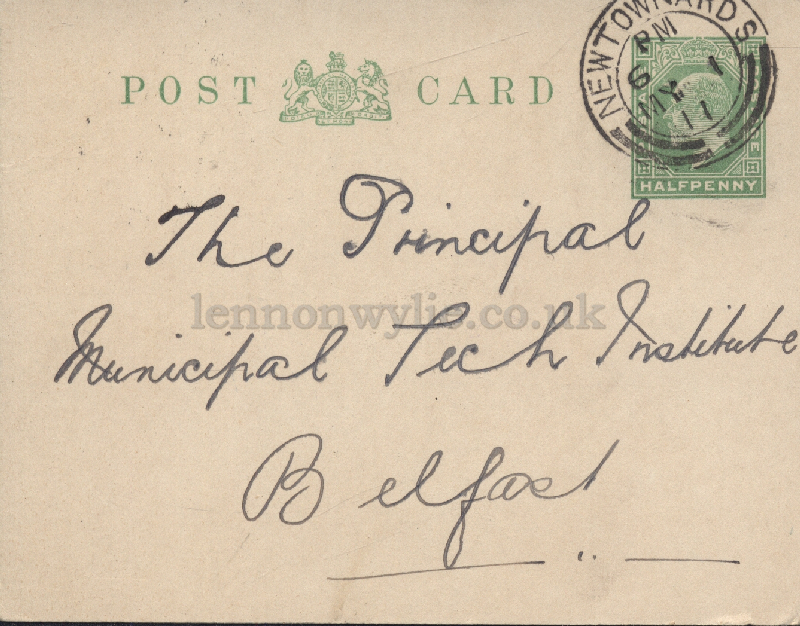 NEWTOWNARDS
6 PM
MY 1
11
POST CARD
HALFPENNY
The Principal
lennonwylie.co.uk
Municipal Tech Institute
Belfast